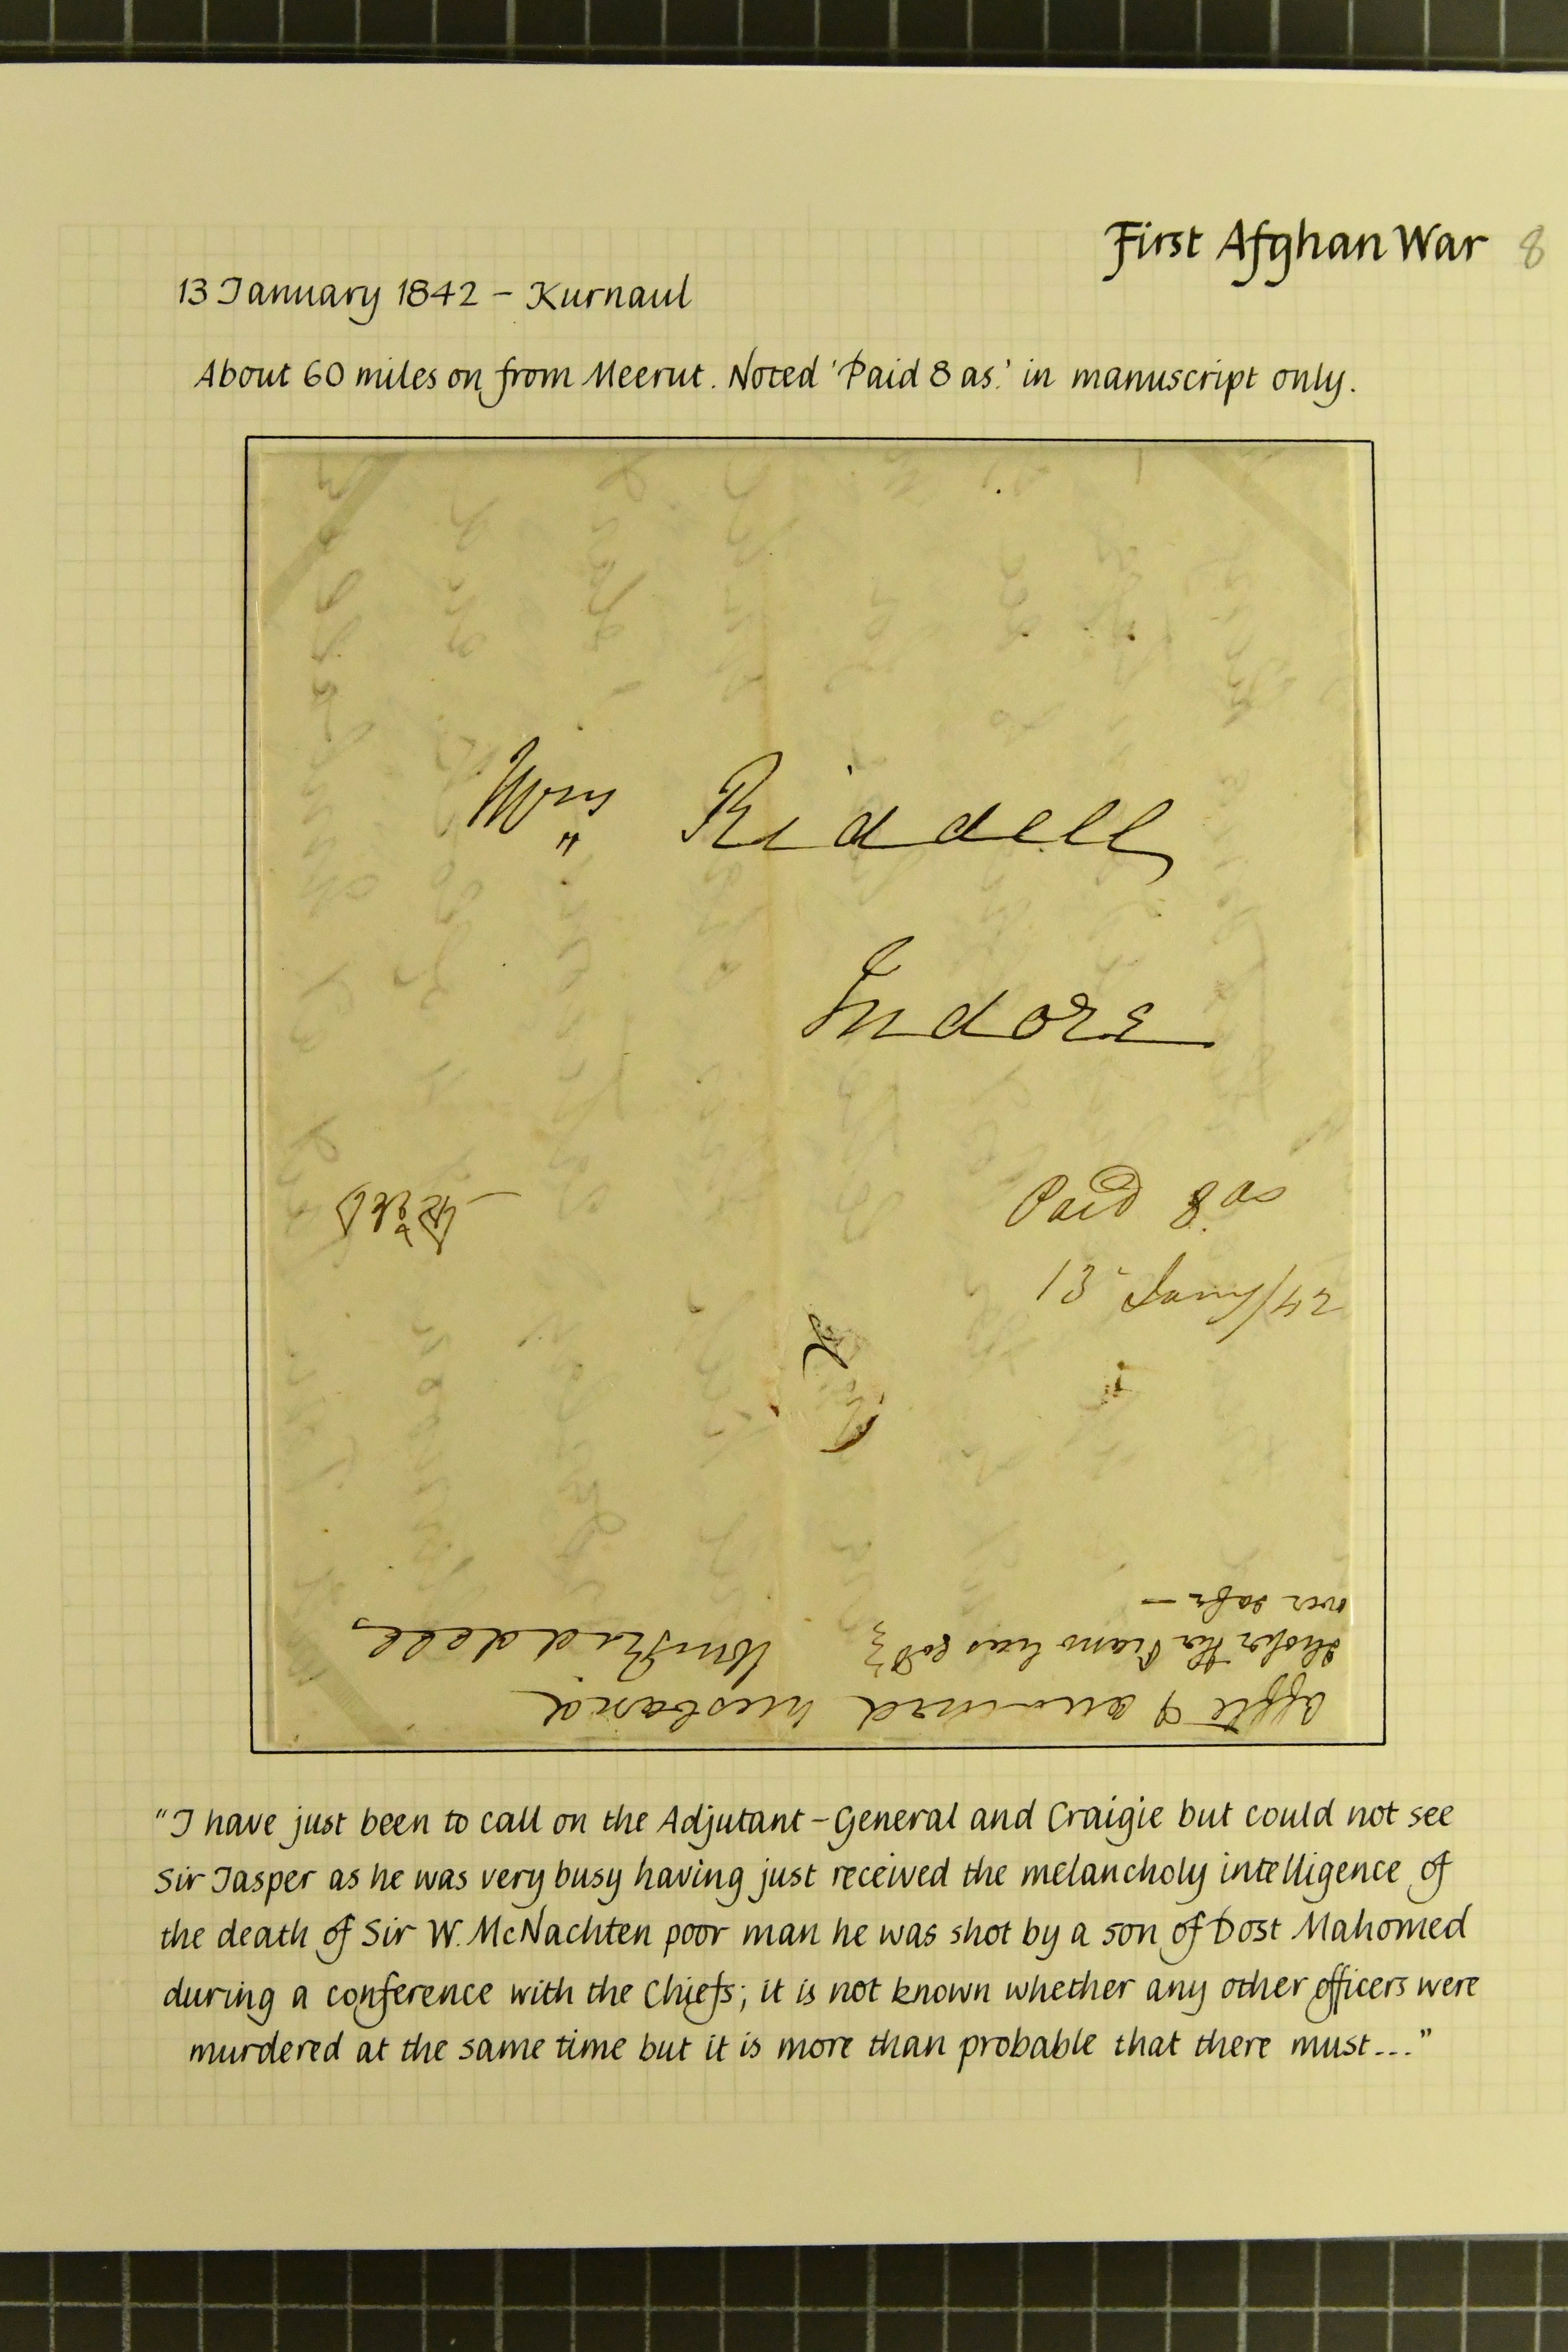 First Afghan War 8
13 January 1842 – Kurnaul
About 60 miles on from Meerut. Noted 'Paid 8 as.' in manuscript only.
Mrs Riddell
Indore
Paid 8 as
13 Jany/42
over safe —
the Piano has got
Wm Riddell
husband
"I have just been to call on the Adjutant-General and Craigie but could not see
Sir Jasper as he was very busy having just received the melancholy intelligence of
the death of Sir W. McNachten poor man he was shot by a son of Dost Mahomed
during a conference with the Chiefs; it is not known whether any other officers were
murdered at the same time but it is more than probable that there must..."